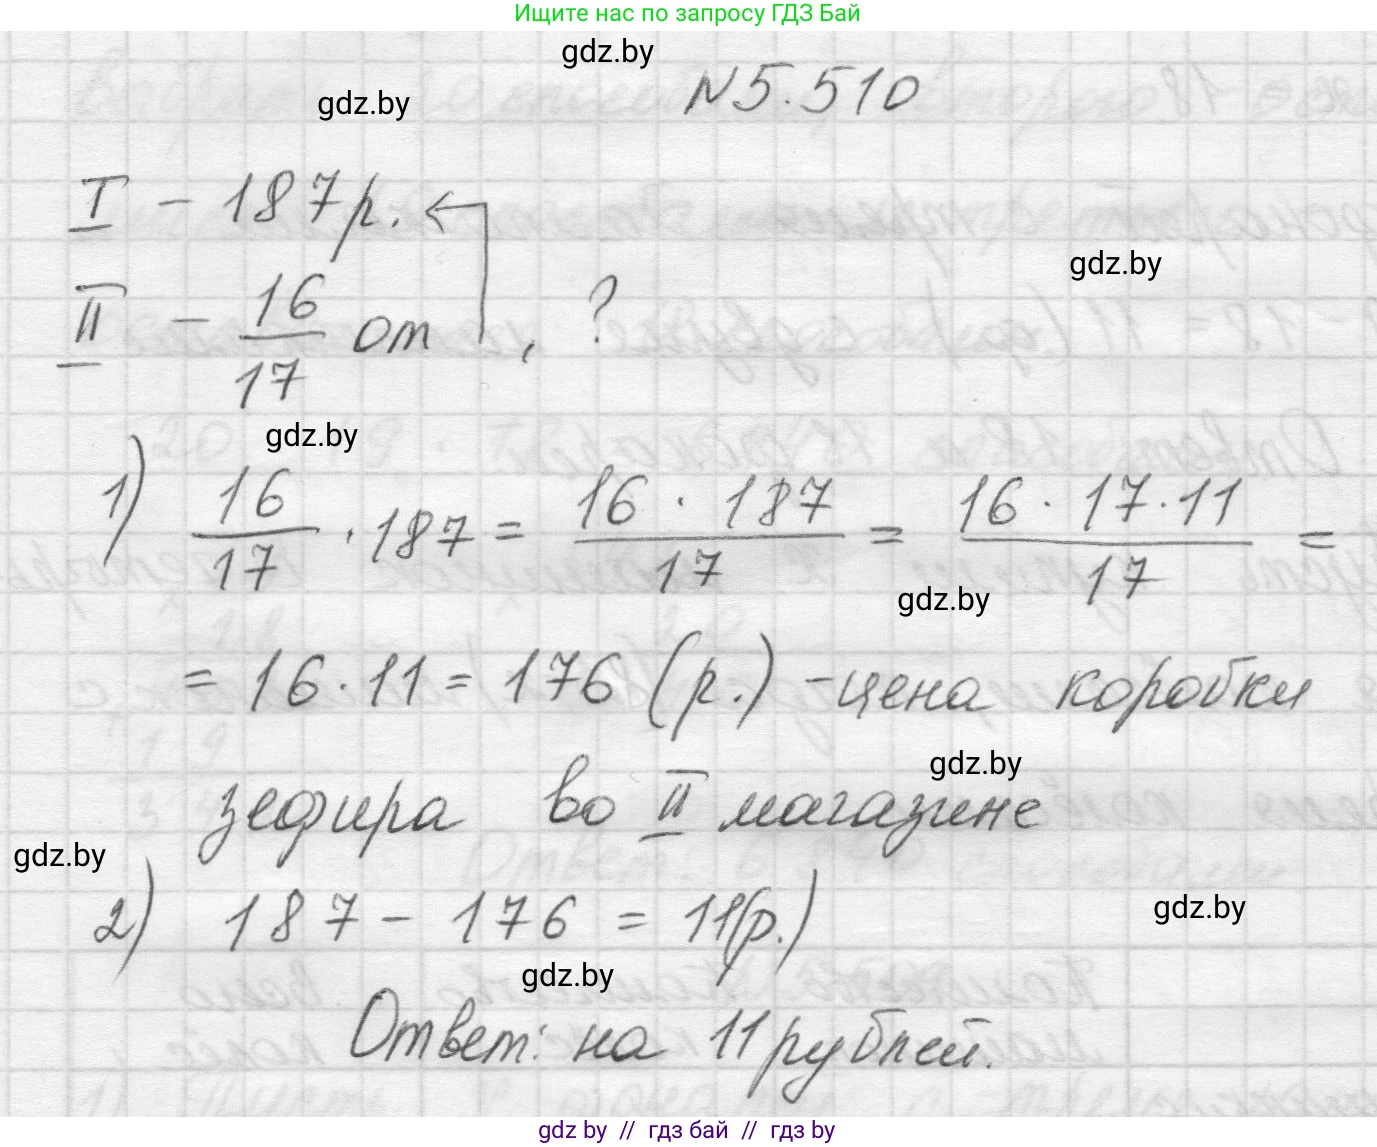 Ищите нас по запросу ГДЗ Бай
gdz.by
№5.510
gdz.by
I - 187р.
gdz.by
II - 16/17 от , ?
gdz.by
1) 16/17 · 187 = 16 · 187/17 = 16 · 17 · 11/17 =
gdz.by
= 16 · 11 = 176 (р.) - цена коробки
gdz.by
зефира во II магазине
gdz.by
2) 187 - 176 = 11(р.)
gdz.by
gdz.by
Ответ: на 11 рублей.
gdz by // гдз бай // гдз by